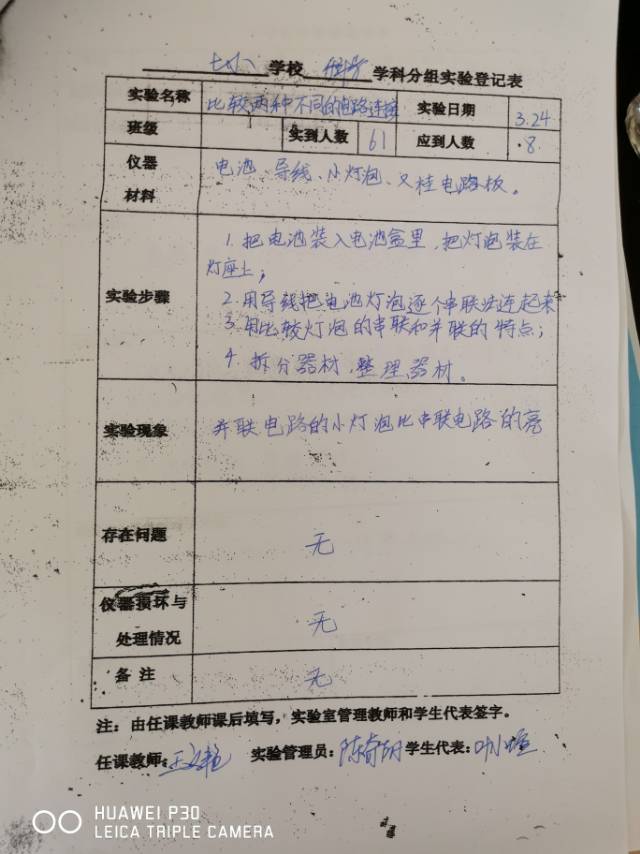 学校 科学 学科分组实验登记表
实验名称 比较两种不同的电路连接 实验日期 3.24
班级 实到人数 61 应到人数 8.
仪器 电池、导线、小灯泡、又桂电路板。
材料
1. 把电池装入电池盒里,把灯泡装在
灯座上;
实验步骤 2. 用导线把电池灯泡逐个串联法连起来
3. 用比较灯泡的串联和并联的特点;
4. 拆分器材,整理器材。
实验现象 并联电路的小灯泡比串联电路的亮
存在问题 无
仪器损坏与
处理情况 无
备注 无
注:由任课教师课后填写,实验室管理教师和学生代表签字。
任课教师: 实验管理员: 学生代表:
HUAWEI P30
LEICA TRIPLE CAMERA